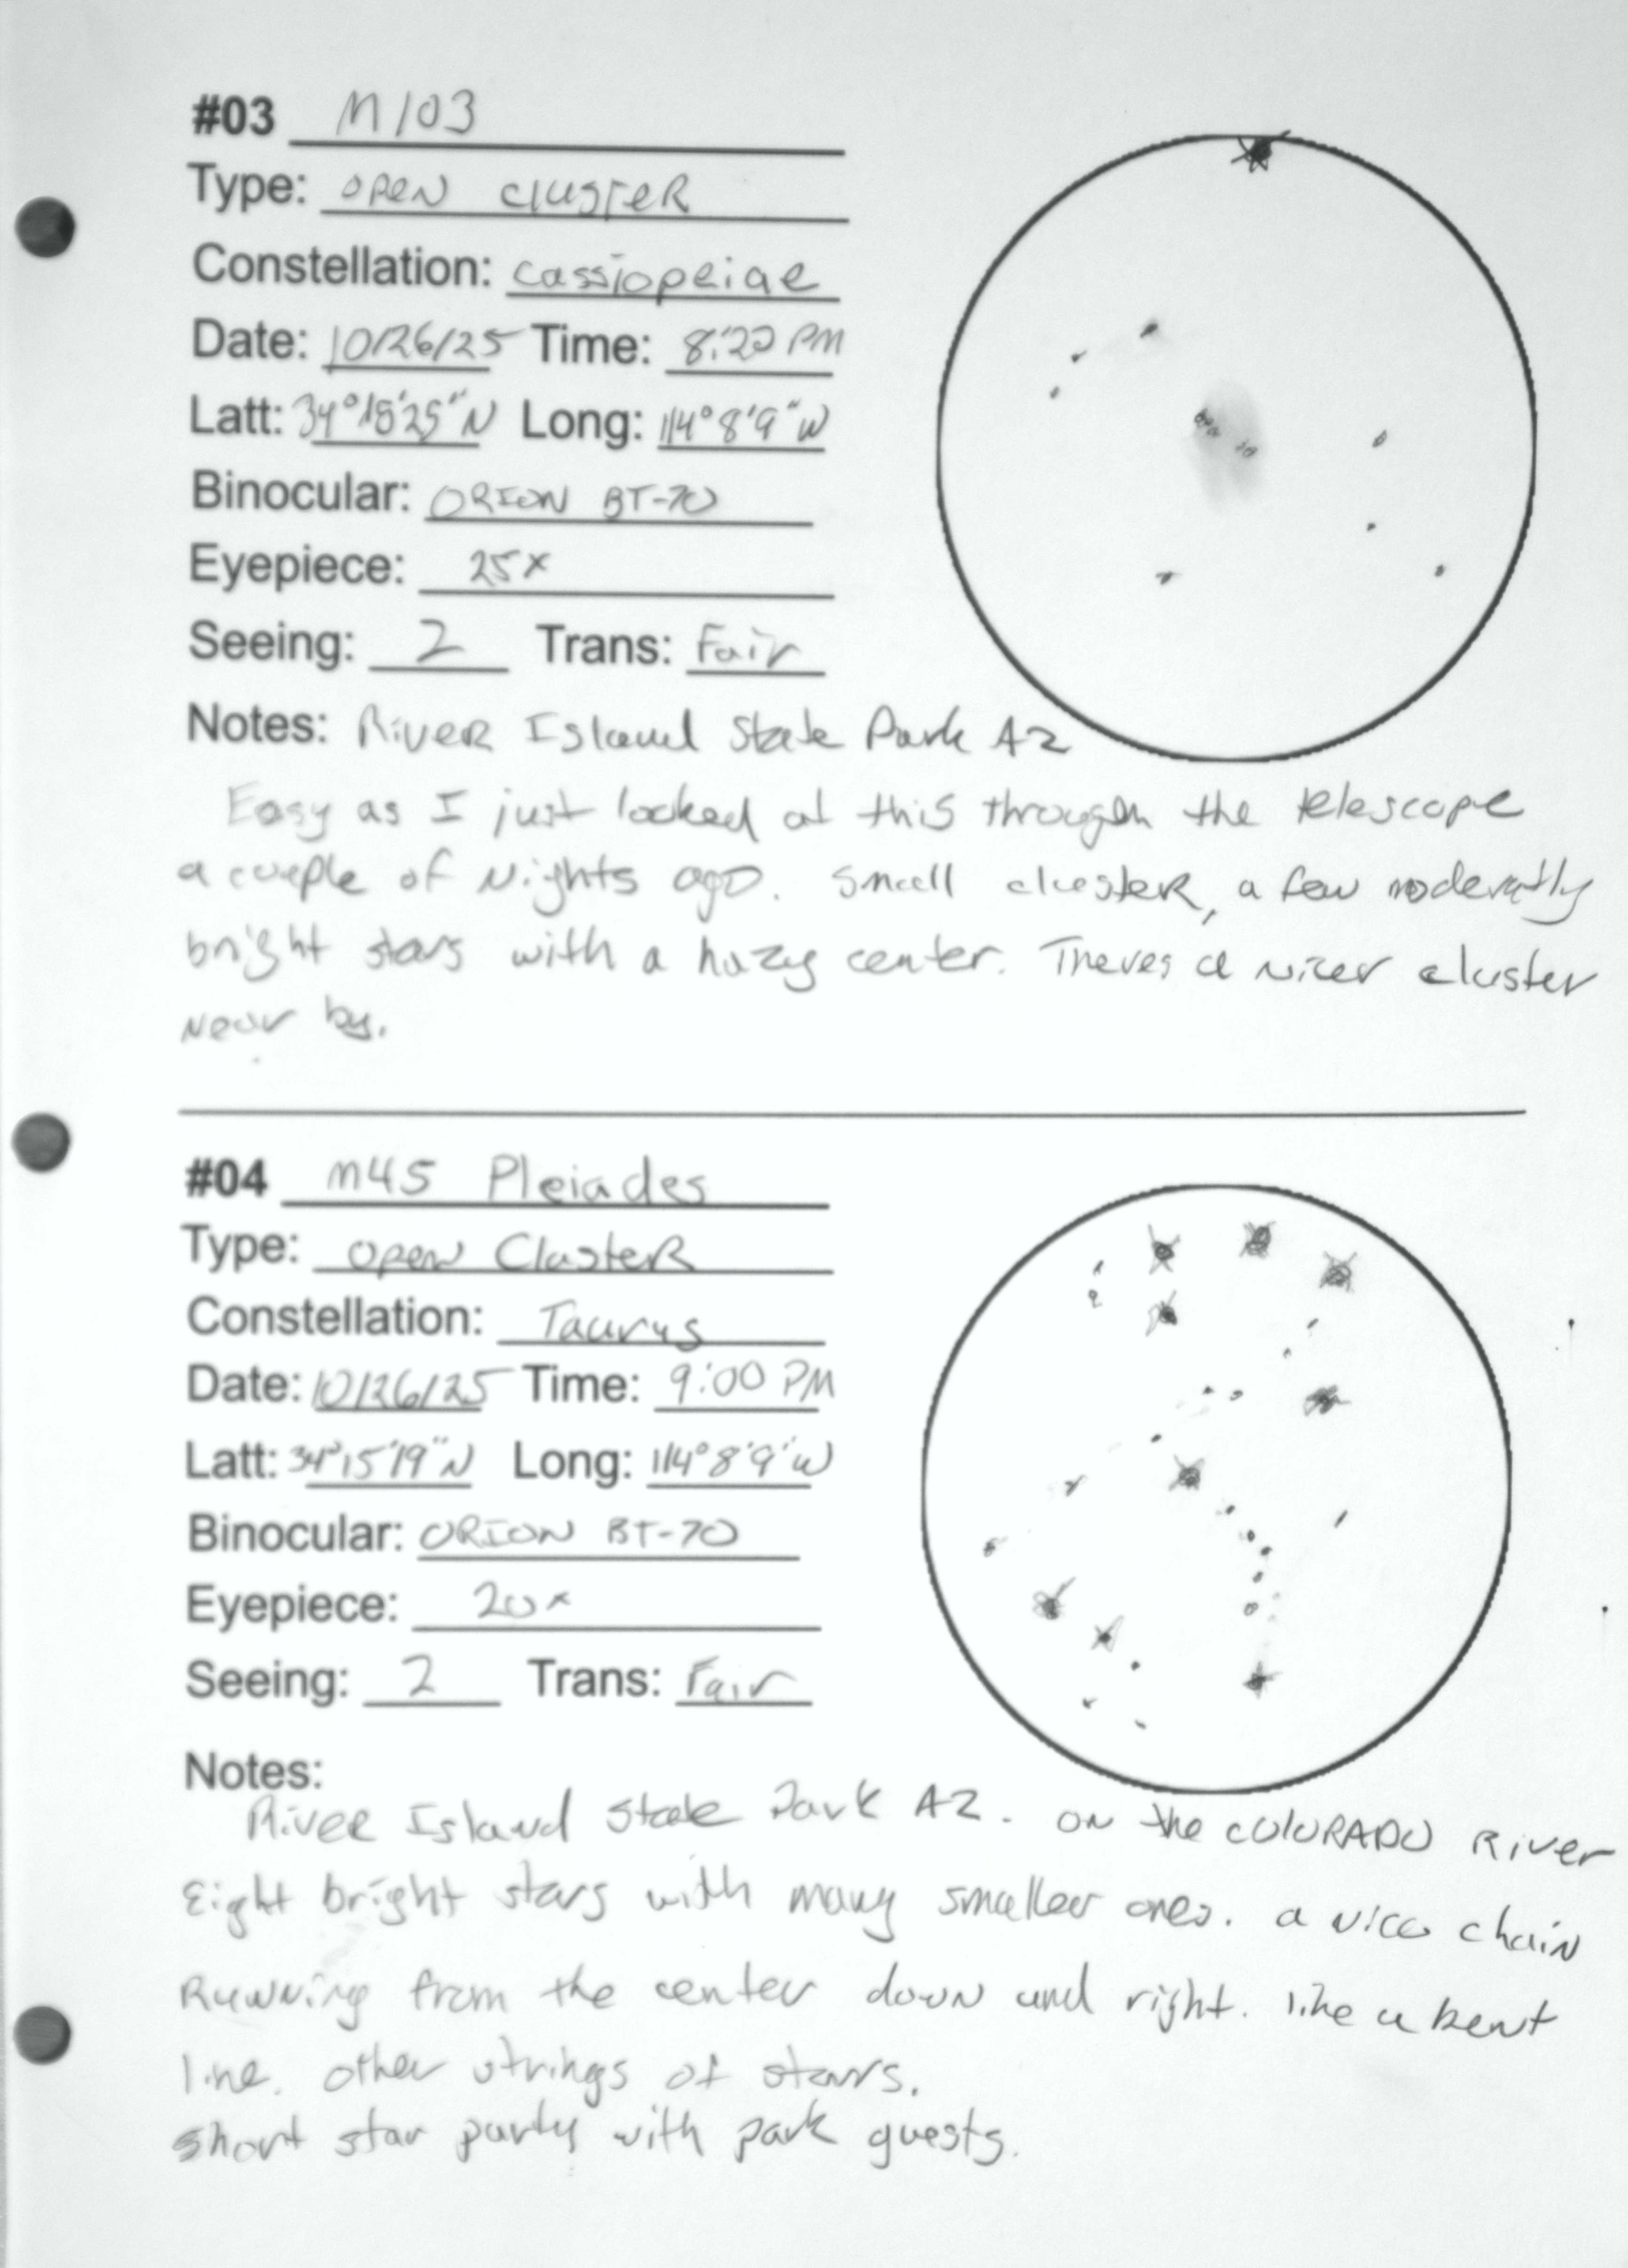 #03 M103
Type: open cluster
Constellation: Cassiopeiae
Date: 10/26/25 Time: 8:20 PM
Latt: 34°15'25"N Long: 114°8'9"W
Binocular: ORION BT-70
Eyepiece: 25x
Seeing: 2 Trans: Fair
Notes: River Island State Park AZ
Easy as I just looked at this through the telescope
a couple of Nights ago. Small cluster, a few moderatly
bright stars with a hazy center. Theres a nicer cluster
Near by.
#04 M45 Pleiades
Type: Open Cluster
Constellation: Taurus
Date: 10/26/25 Time: 9:00 PM
Latt: 34°15'19"N Long: 114°8'9"W
Binocular: ORION BT-70
Eyepiece: 20x
Seeing: 2 Trans: Fair
Notes:
River Island State Park AZ. ON the COLORADO River
Eight bright stars with many smaller ones. a nice chain
Running from the center down and right. like a bent
line. other strings of stars.
Short star party with park guests.